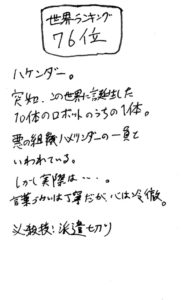 世界ランキング
76位
ハケンダー。
突如、この世界に誕生した
10体のロボットのうちの1体。
悪の組織ハメツンダーの一員と
いわれている。
しかし実際は・・・。
言葉づかいは丁寧だが、心は冷徹。
必殺技:派遣切り